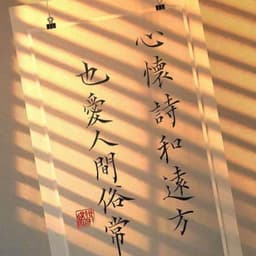 心懷詩和遠方
也愛人間俗常